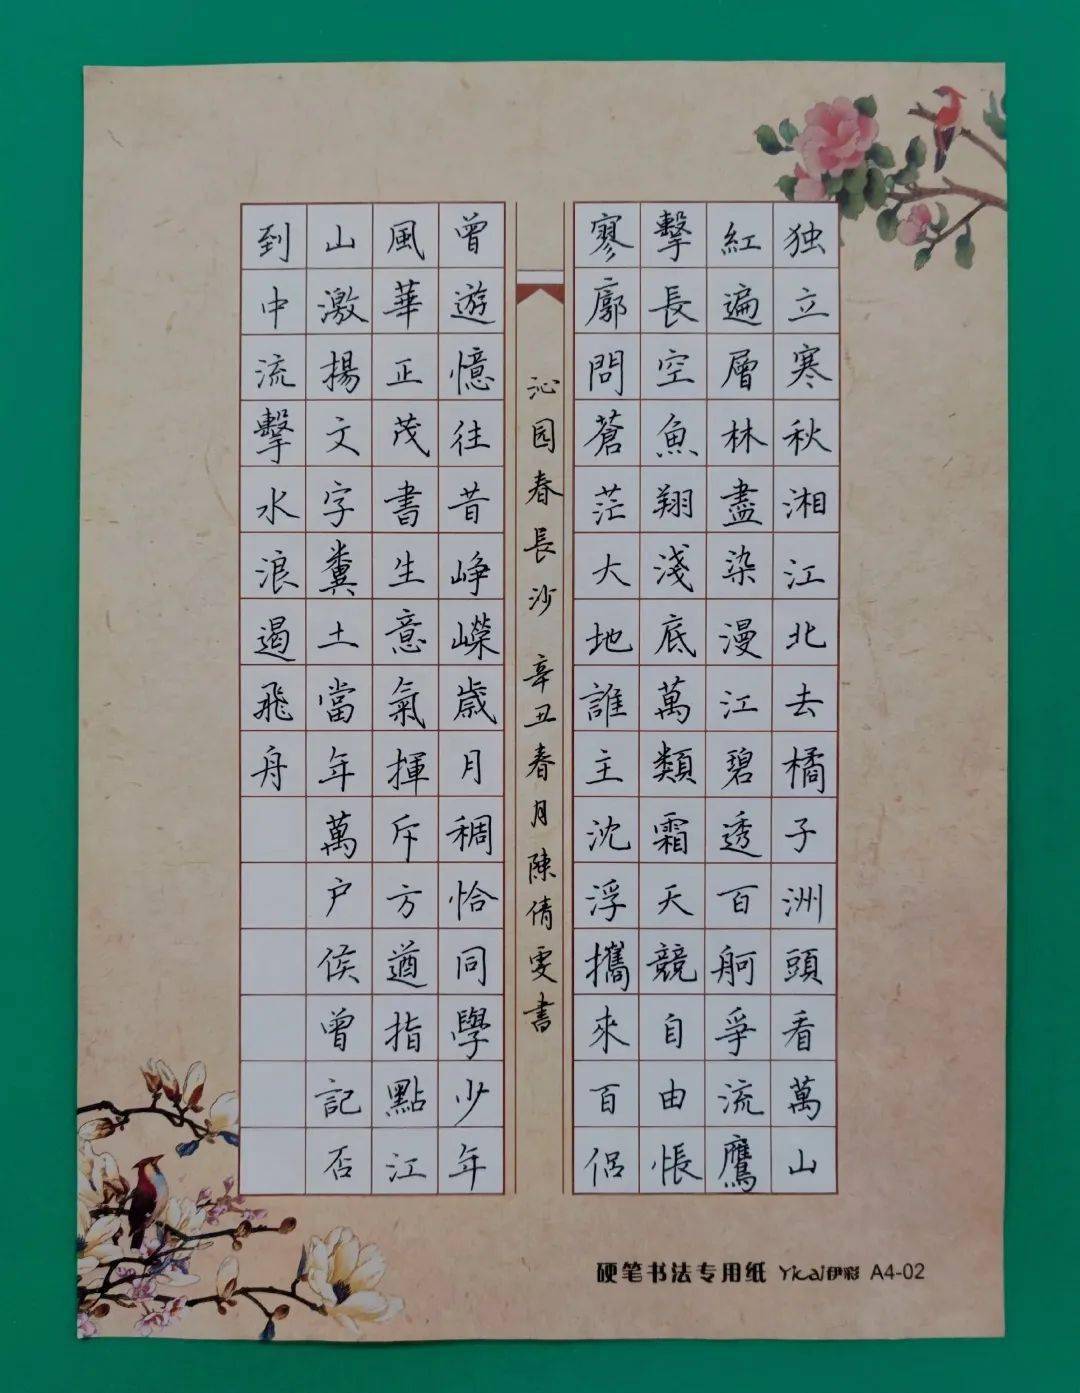 独立寒秋湘江北去橘子洲頭看萬山
紅遍層林盡染漫江碧透百舸爭流鷹
擊長空魚翔淺底萬類霜天競自由悵
寥廓問蒼茫大地誰主沈浮攜來百侶
沁园春長沙 辛丑春月陳倩雯書
曾遊憶往昔峥嶸歲月稠恰同學少年
風華正茂書生意氣揮斥方遒指點江
山激揚文字糞土當年萬户侯曾記否
到中流擊水浪遏飛舟
硬笔书法专用纸 Yicai伊彩 A4-02